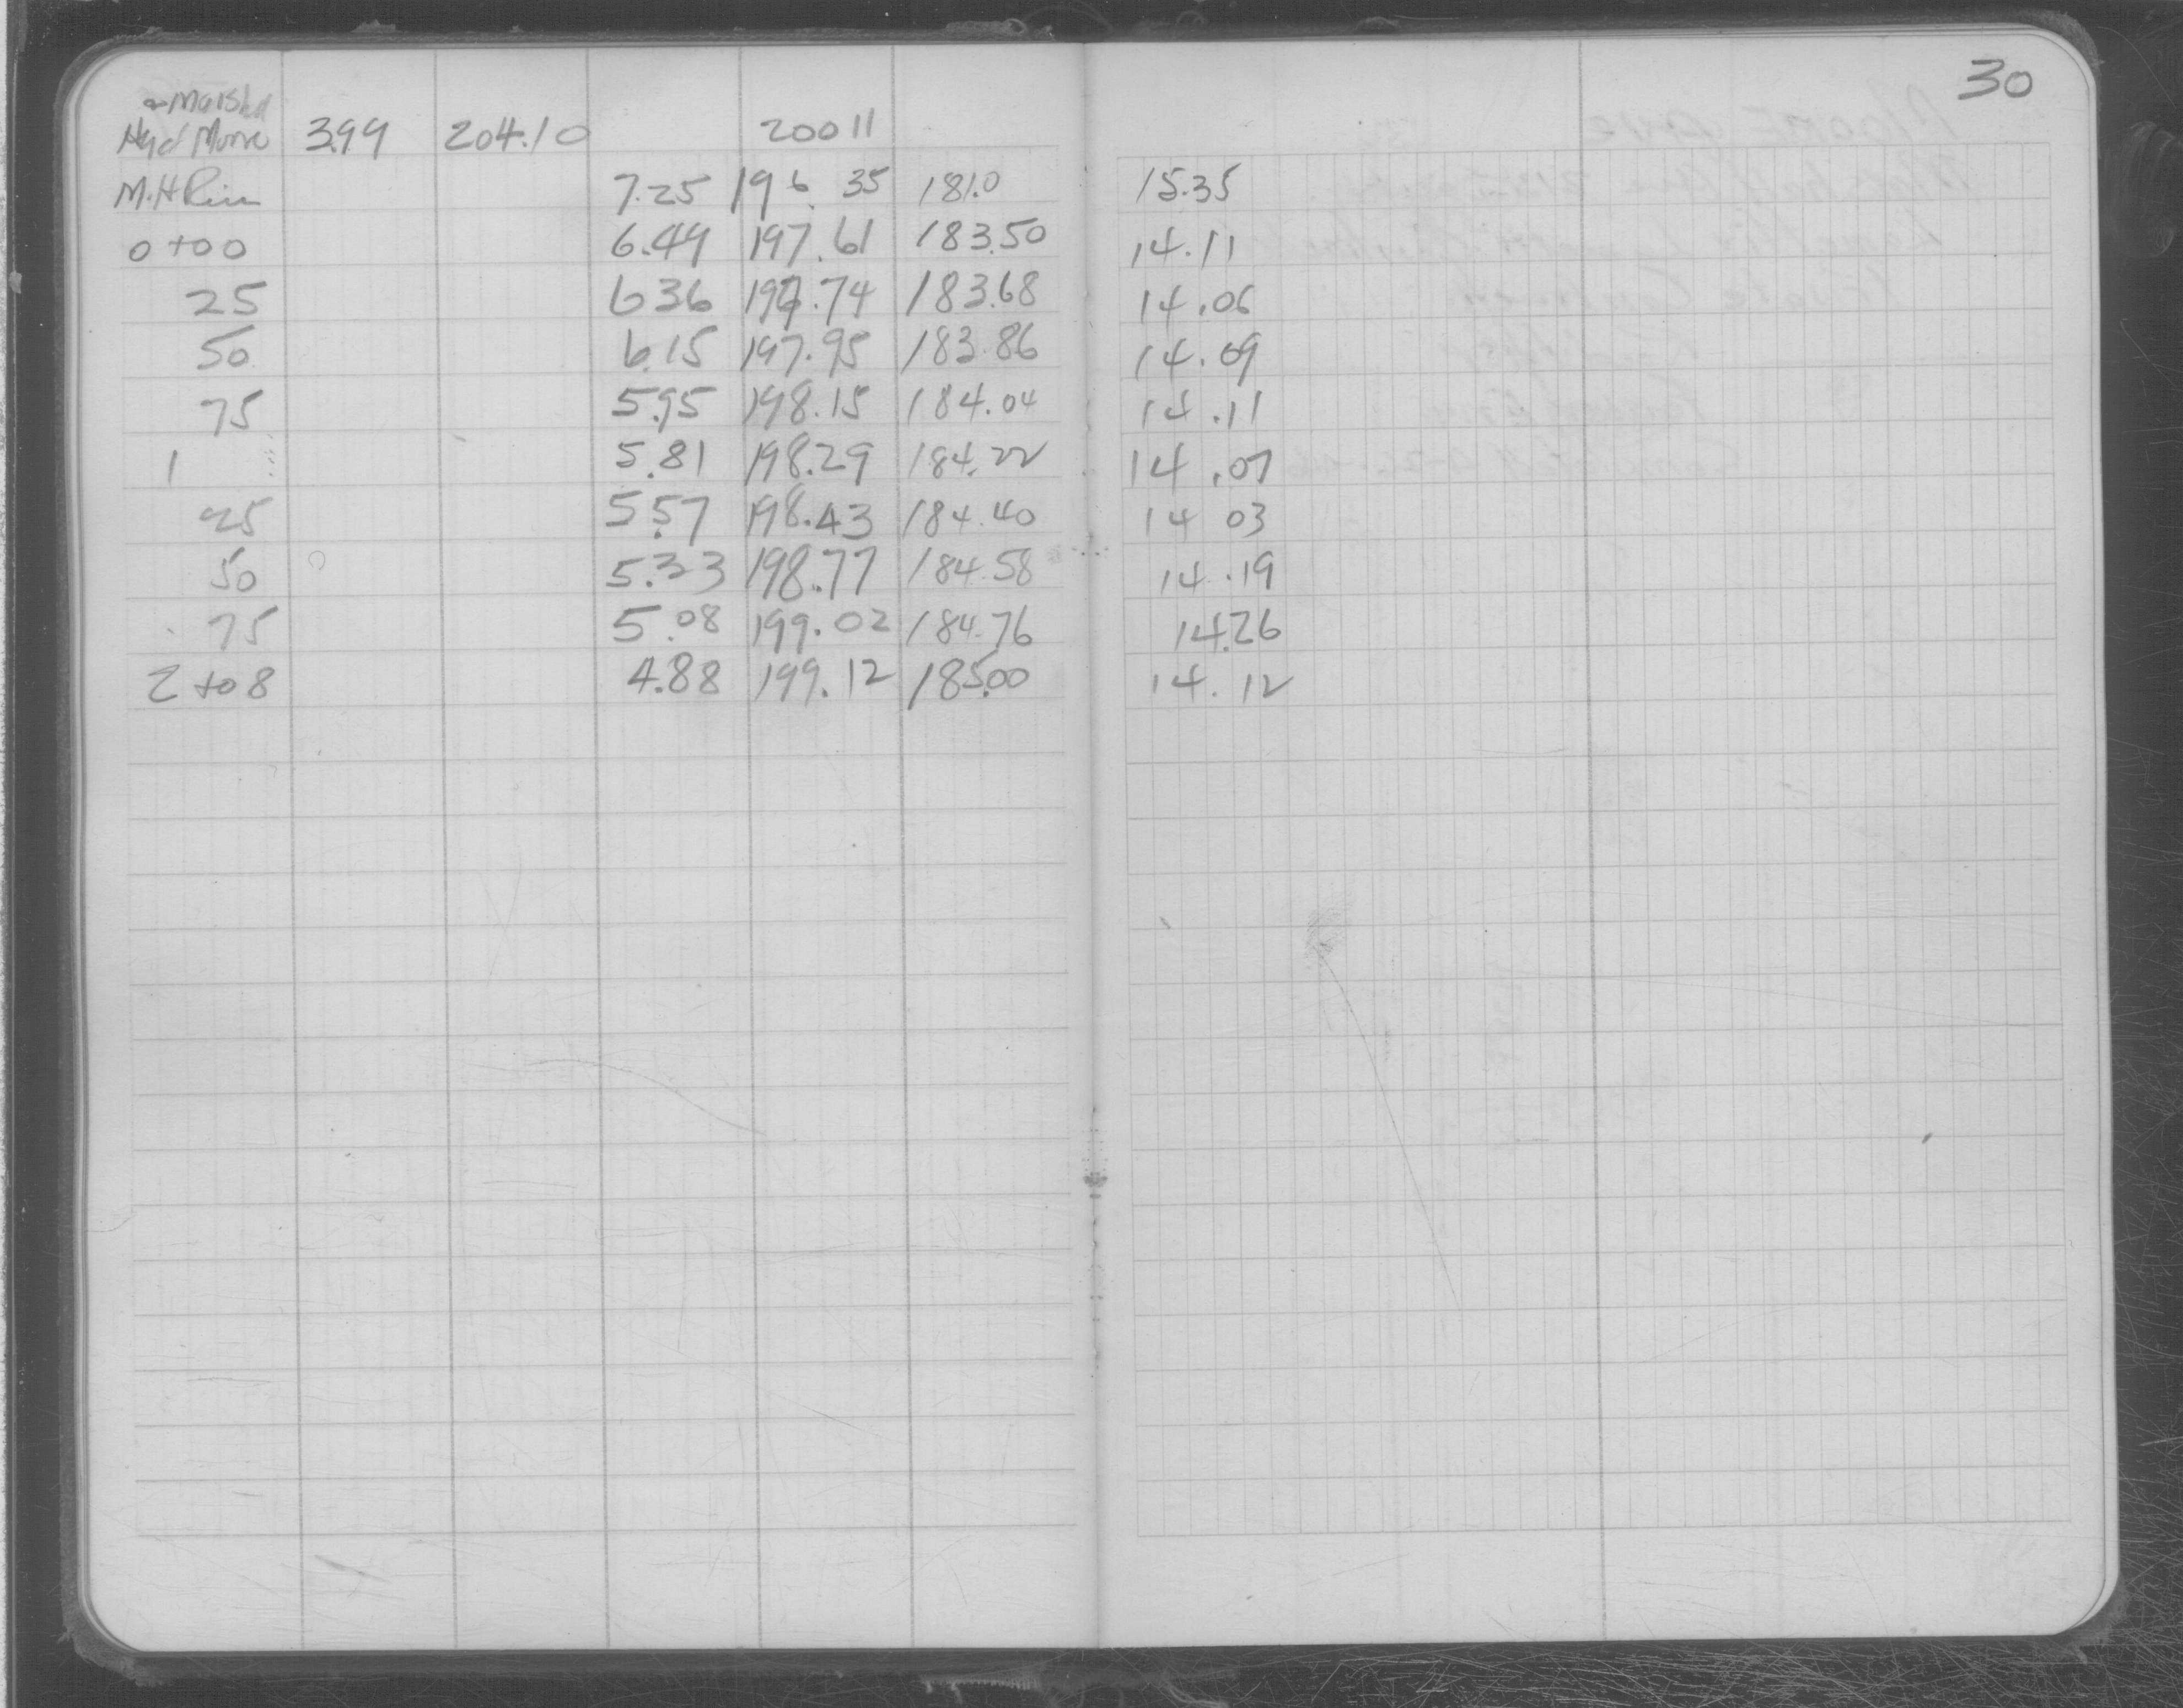 30
& Marshall
Hyd Moore 3.99 204.10 200 11
M.H Rim 7.25 196.35 181.0 15.35
0+00 6.49 197.61 183.50 14.11
25 6 36 197.74 183.68 14.06
50 6.15 197.95 183.86 14.09
75 5.95 198.15 184.04 14.11
1 5.81 198.29 184.22 14.07
25 5.57 198.43 184.40 14 03
50 5.33 198.77 184.58 14.19
75 5.08 199.02 184.76 14.26
2+08 4.88 199.12 185.00 14.12